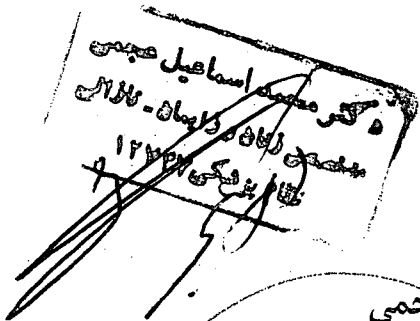 دکتر محمد اسماعیل نجمی
متخصص زنان، زایمان - نازائی
نظام پزشکی
جمی